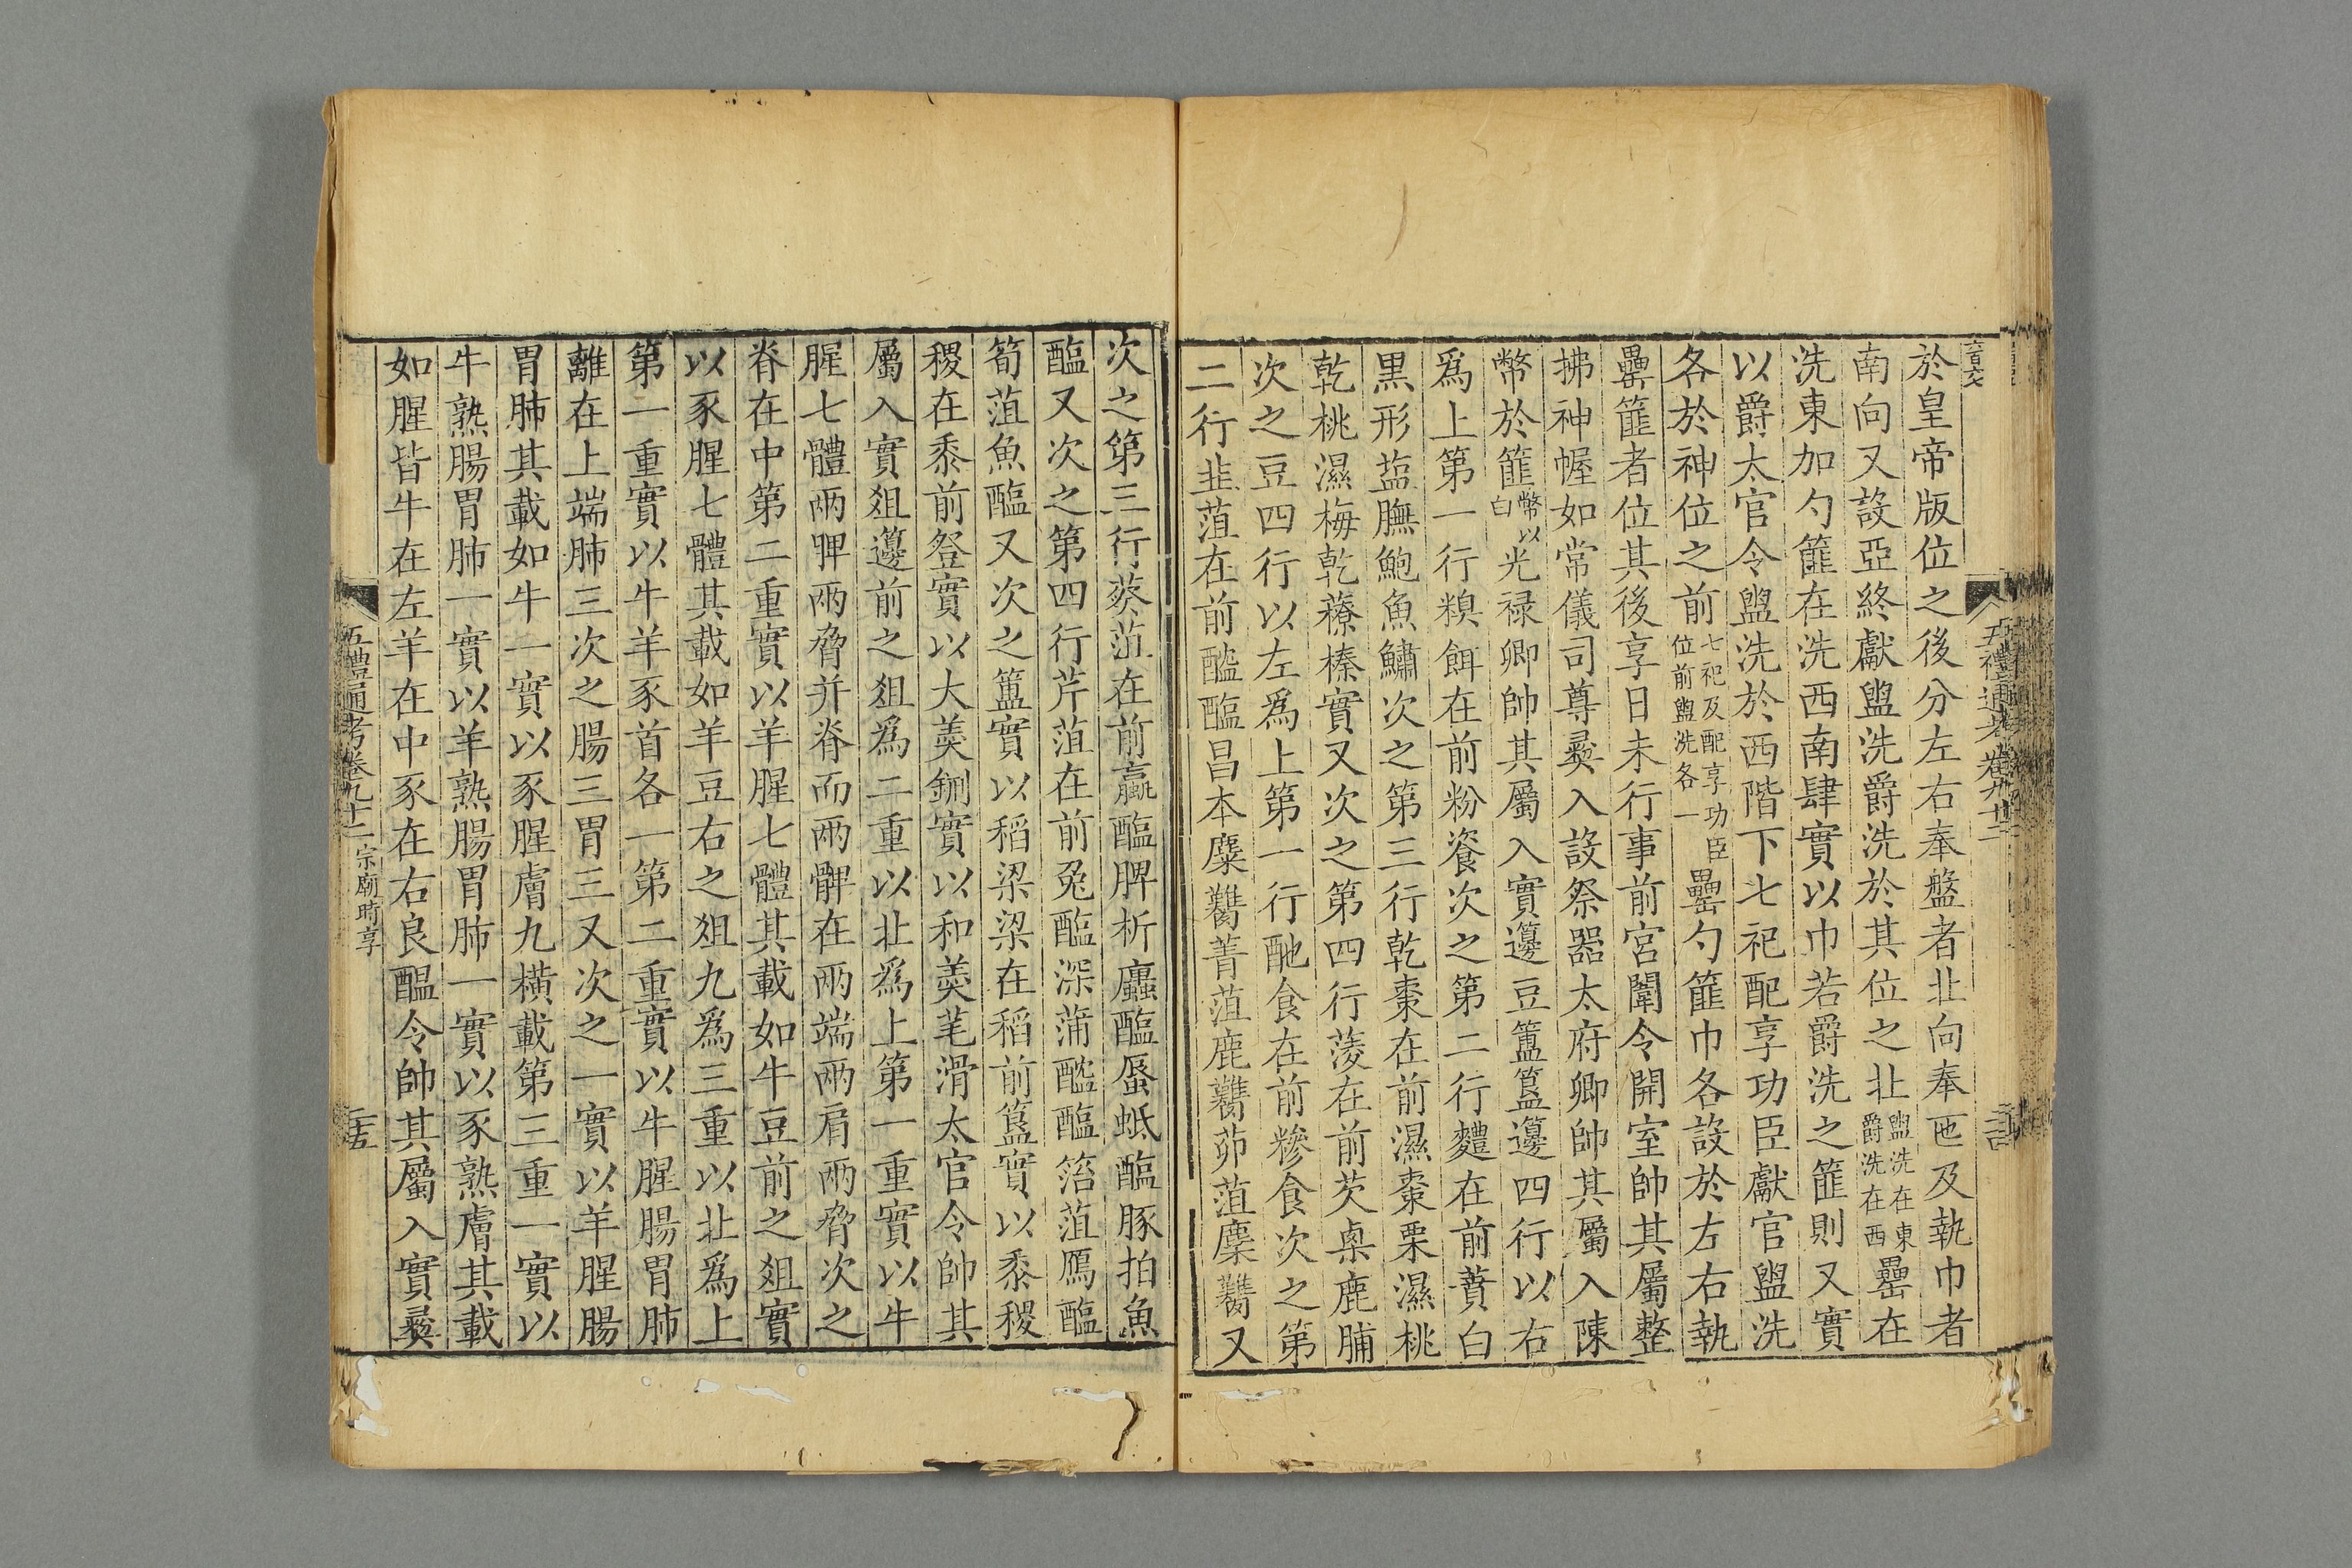 於皇帝版位之後分左右奉盤者北向奉匜及執巾者
南向又設亞終獻盥洗爵洗於其位之北盥洗在東爵洗在西罍在
洗東加勺篚在洗西南肆實以巾若爵洗之篚則又實
以爵太官令盥洗於西階下七祀配享功臣獻官盥洗
各於神位之前七祀及配享功臣位前盥洗各一罍勺篚巾各設於左右執
罍篚者位其後享日未行事前宮闈令開室帥其屬整
拂神幄如常儀司尊彝入設祭器太府卿帥其屬入陳
幣於篚幣以白光祿卿帥其屬入實籩豆簠簋籩四行以右
爲上第一行糗餌在前粉餈次之第二行麷在前蕡白
黑形鹽膴鮑魚鱐次之第三行乾棗在前濕棗栗濕桃
乾桃濕梅乾䕩榛實又次之第四行菱在前芡㮚鹿脯
次之豆四行以左爲上第一行酏食在前糝食次之第
二行韭菹在前醓醢昌本麋臡菁菹鹿臡茆菹麋臡又
次之第三行葵菹在前蠃醢脾析蠯醢蜃蚳醢豚拍魚
醢又次之第四行芹菹在前兔醢深蒲醓醢箈菹鴈醢
筍菹魚醢又次之簠實以稻粱粱在稻前簋實以黍稷
稷在黍前㽅實以大羹鉶實以和羹芼滑太官令帥其
屬入實俎籩前之俎爲二重以北爲上第一重實以牛
腥七體兩䏶兩脅并脊而兩髀在兩端兩肩兩脅次之
脊在中第二重實以羊腥七體其載如牛豆前之俎實
以豕腥七體其載如羊豆右之俎九爲三重以北爲上
第一重實以牛羊豕首各一第二重實以牛腥腸胃肺
離在上端肺三次之腸三胃三又次之一實以羊腥腸
胃肺其載如牛一實以豕腥膚九橫載第三重一實以
牛熟腸胃肺一實以羊熟腸胃肺一實以豕熟膚其載
如腥皆牛在左羊在中豕在右良醞令帥其屬入實彝
五禮通考卷九十二 宗廟時享 二十五